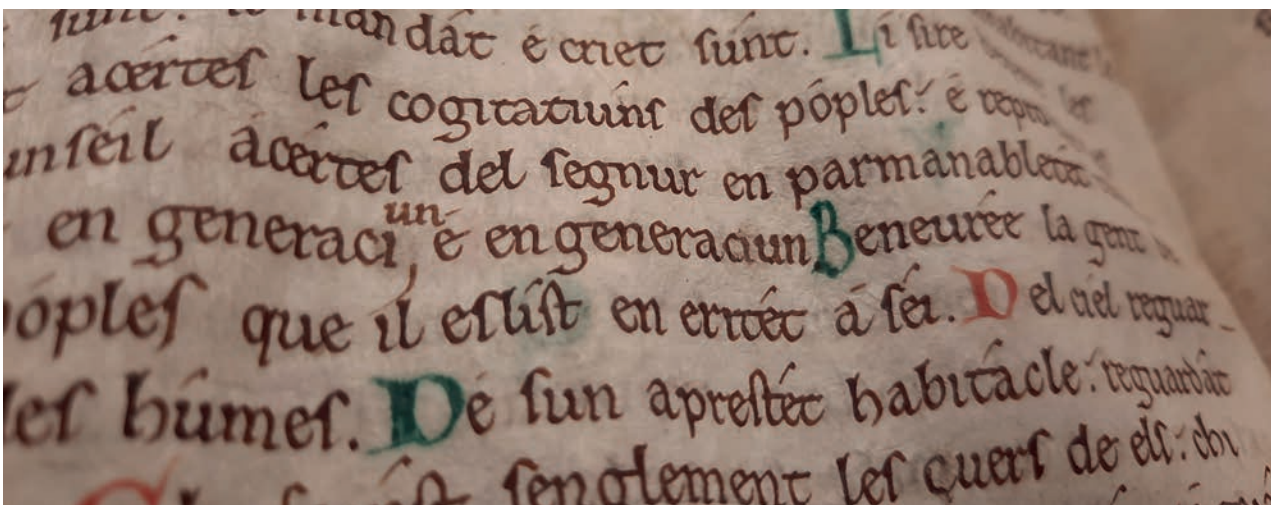 mandát é criet sunt. Li sire
acértes les cogitatiuns des póples: é
unseil ácértes del segnur en parmanabletét
en generaciun é en generaciun Beneurée la gent
póples que il eslist en eritét á séi. Del ciel reguar-
les húmes. Dé sun aprestét habitácle: reguardát
senglement les cuers de els: